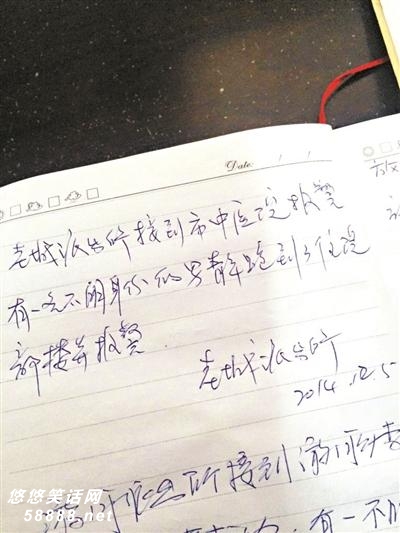 Date: / /
老城派出所接到市中医院报警
有一名不明身份的男青年跑到了住院
部楼并报警
老城派出所
2014.12.5
派出所接到
有一不
悠悠笑话网
58888.net